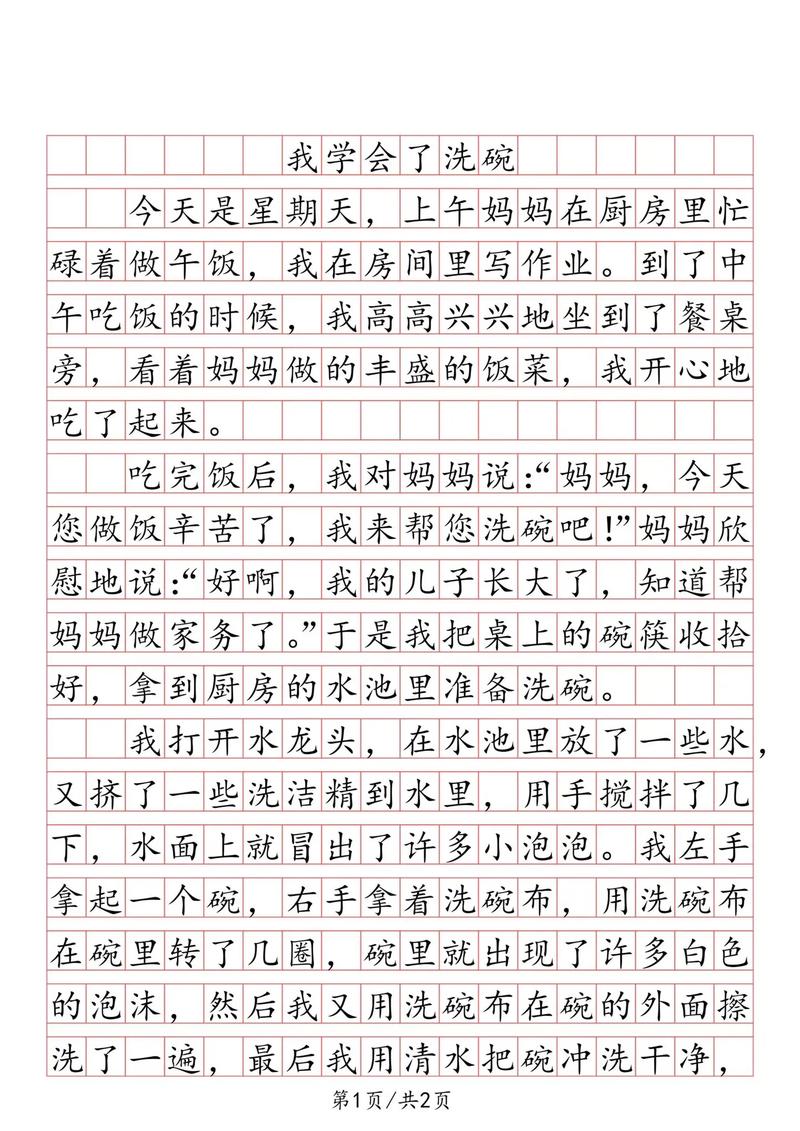 我学会了洗碗
今天是星期天，上午妈妈在厨房里忙
碌着做午饭，我在房间里写作业。到了中
午吃饭的时候，我高高兴兴地坐到了餐桌
旁，看着妈妈做的丰盛的饭菜，我开心地
吃了起来。
吃完饭后，我对妈妈说：“妈妈，今天
您做饭辛苦了，我来帮您洗碗吧！”妈妈欣
慰地说：“好啊，我的儿子长大了，知道帮
妈妈做家务了。”于是我把桌上的碗筷收拾
好，拿到厨房的水池里准备洗碗。
我打开水龙头，在水池里放了一些水，
又挤了一些洗洁精到水里，用手搅拌了几
下，水面上就冒出了许多小泡泡。我左手
拿起一个碗，右手拿着洗碗布，用洗碗布
在碗里转了几圈，碗里就出现了许多白色
的泡沫，然后我又用洗碗布在碗的外面擦
洗了一遍，最后我用清水把碗冲洗干净，
第1页/共2页